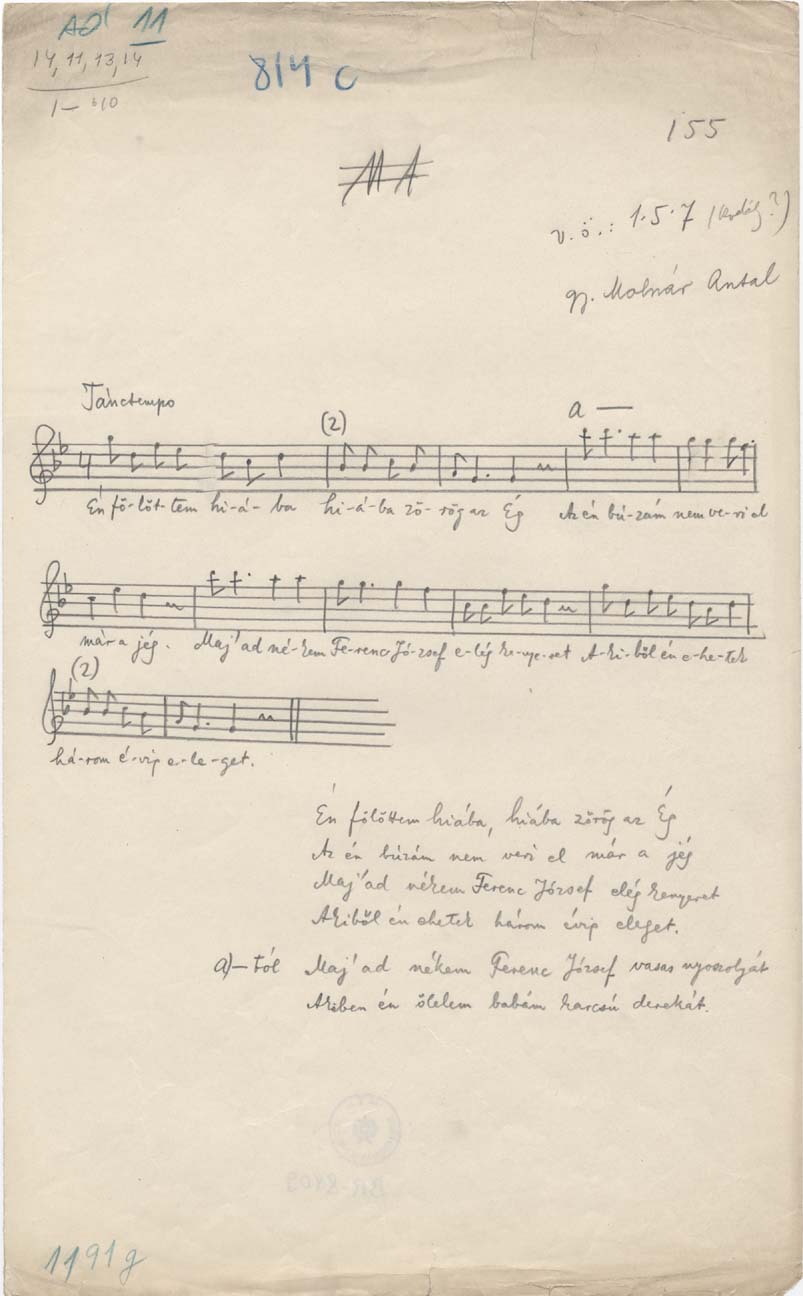 AD 11
14, 11, 13, 14
814 c
155
MA
v.ö.: 1.5.7 (Kodály?)
gy. Molnár Antal
Tánctempo
(2)
a —
Én fö-löt-tem hi-á-ba hi-á-ba zö-rög az Ég Az én bú-zám nem ve-ri el
már a jég. Maj' ad né-kem Fe-renc Jó-zsef e-lég ke-nye-ret A-ki-ből én e-he-tek
(2)
há-rom é-vig e-le-get.
Én fölöttem hiába, hiába zörög az Ég
Az én búzám nem veri el már a jég
Maj' ad nékem Ferenc József elég kenyeret
Akiből én ehetek három évig eleget.
a)—tól Maj' ad nékem Ferenc József vasas nyoszolyát
Akiben én ölelem babám karcsú derekát.
1191g